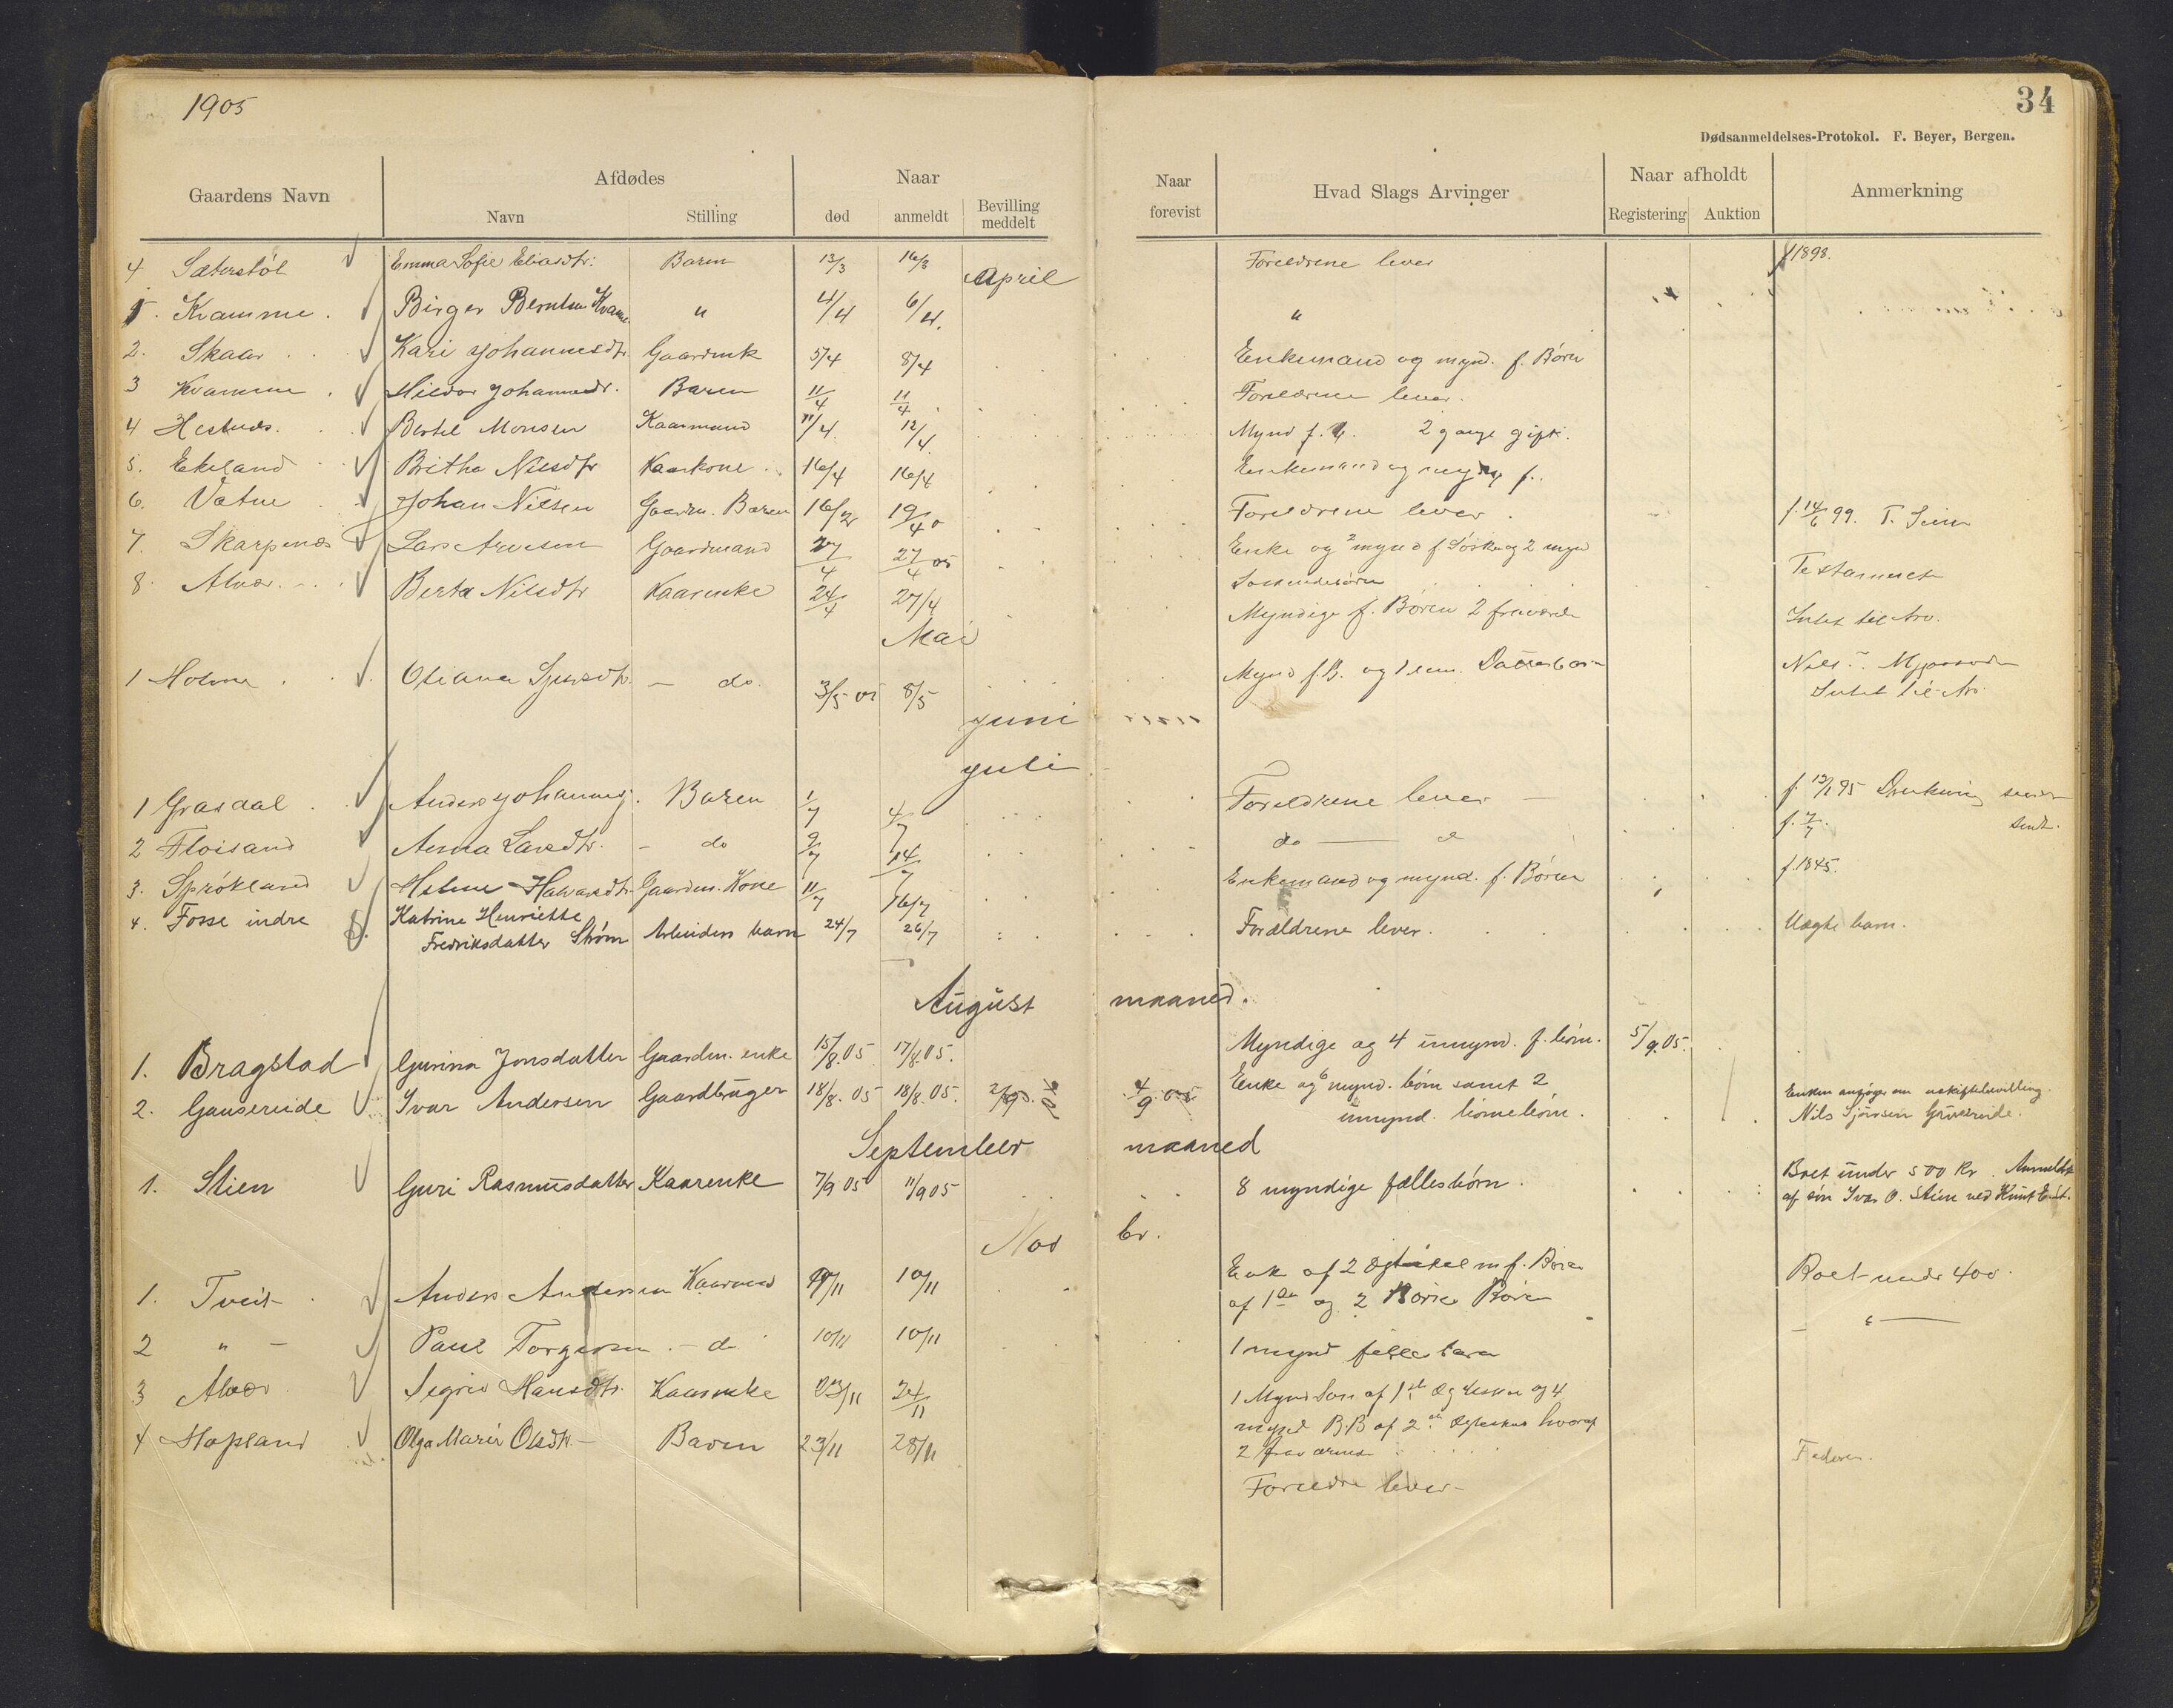 1905
34
Dødsanmeldelses-Protokol. F. Beyer, Bergen.
Gaardens Navn Afdødes Naar Naar forevist Hvad Slags Arvinger Naar afholdt Anmerkning
Navn Stilling død anmeldt Bevilling meddelt Registering Auktion
4 Sæterstøl Emma Sofie Eliasdtr. Baren 13/3 16/3 Foreldrene lever f 1898.
April
1. Kvamme. Birger Berntsen Kvamme " 4/4 6/4. "
2. Skaar Kari Johannesdtr. Gaardmk 5/4 8/4 Enkemand og mynd. f. Børn
3 Kvamme Johannesdr. Baren 11/4 11/4 Foreldrene lever.
4 Hestnes. Bertel Monsen Kaarmand 11/4. 12/4. Mynd f. B. 2 gange gift.
5. Ekeland Britha Nilsdtr Kaarkone 16/4 16/4 Enkemand og f..
6. Vatne Johan Nilsen Gaardm. Baren 16/2 19/4 Foreldrene lever. f. 14/6 99. T. Seim
7. Skarpenes Lars Arvesen Gaardmand 27/4 27/4 05 Enke og 2 mynd f Søsk og 2 mynd
Testament
8. Alvær Berta Nilsdtr Kaarenke 24/4 27/4 Myndige f. Børen 2 fraværd
Intet til Arv.
Mai
1 Holme Oliana Sjursdtr. - do. 3/5 05 8/5 Mynd f. B. og 1 Datterbarn
Intet til Arv
Juni
Juli
1 Grasdal Anders Johannesj. Baren 1/7 4/7 Foreldrene lever f. 95 Drukning
2 Floisand Anna Larsdtr. - do 9/7 14/7 do f. 7/7.
3. Sprøkland Halvardtr. Gaardm. Kone 11/7 16/7 Enkemand og mynd. f. Børen f. 1845.
4. Fosse indre Katrine Henriette
Fredriksdatter Strøm Arbeiders barn 24/7 26/7 Forældrene lever. Uægte barn.
August maaned.
1. Bragstad Gurina Jonsdatter Gaardm. enke 15/8.05 17/8.05. Myndige og 4 umynd. f. børn. 5/9.05.
2. Gausereide Ivar Andersen Gaardbruger 18/8.05 18/8.05. 4/9.05 Enke og 6 mynd. børn samt 2
umynd. børnebørn.
Enken ansøger om uskiftebevilling.
Nils Sjursen Gausereide.
September maaned
1. Stien Guri Rasmusdatter Kaarenke 7/9 05 11/9 05 8 myndige fællesbørn.
Boet under 500 Kr. Anmeldt
af søn Ivar O. Stien ved Knut E. St.
Nov br.
1. Tveit Anders Andersen Kaarmand 10/11 Enk af 2 Børn
af 1ste og 2 Børn
Boet under 400.
2 " - Paul Torgersen - do. 10/11 10/11 1 mynd fælles barn
3 Alvær Sigrid Hansdtr. Kaarenke 23/11 24/11 1 Mynd Søn af 1ste Ægteskab og 4
mynd B.B af 2det Ægteskab hvoraf
2 fraværende
4 Hopland Olga Marie Olsdtr. Baren 23/11 28/11 Foreldre lever-
Faderen.